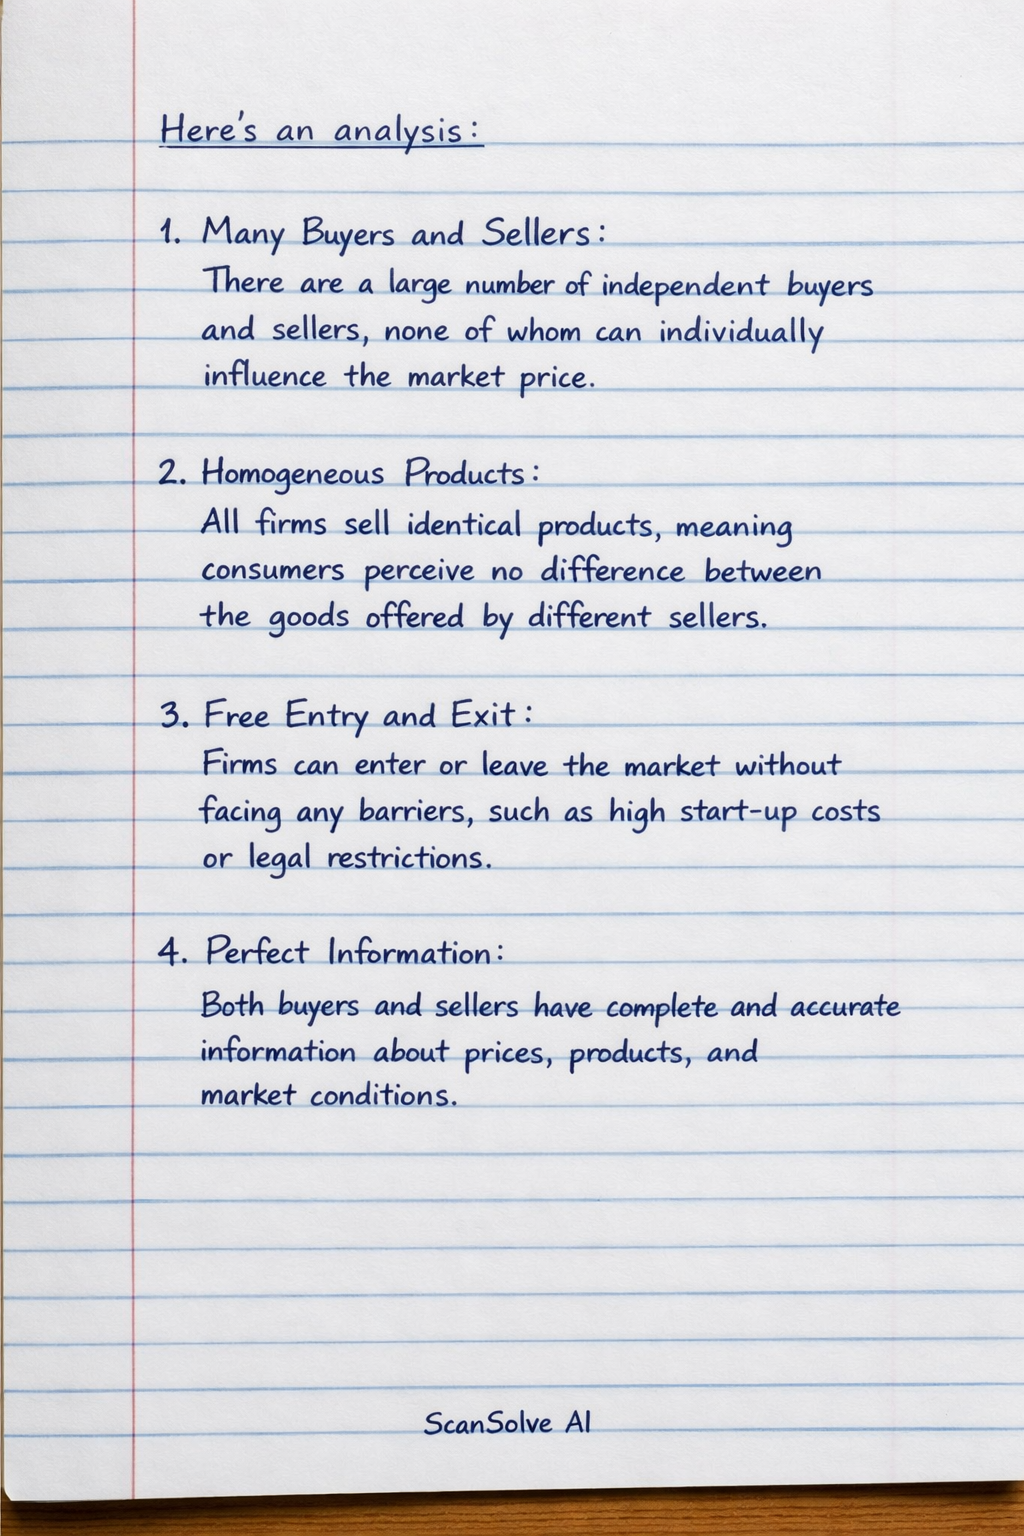 Here's an analysis:
1. Many Buyers and Sellers:
There are a large number of independent buyers
and sellers, none of whom can individually
influence the market price.
2. Homogeneous Products:
All firms sell identical products, meaning
consumers perceive no difference between
the goods offered by different sellers.
3. Free Entry and Exit:
Firms can enter or leave the market without
facing any barriers, such as high start-up costs
or legal restrictions.
4. Perfect Information:
Both buyers and sellers have complete and accurate
information about prices, products, and
market conditions.
ScanSolve AI